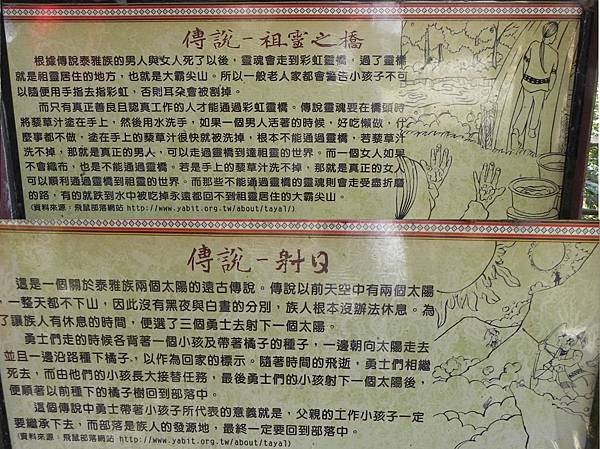 傳說－祖靈之橋
根據傳說泰雅族的男人與女人死了以後，靈魂會走到彩虹靈橋，過了靈橋
就是祖靈居住的地方，也就是大霸尖山。所以一般老人家都會警告小孩子不可
以隨便用手指去指彩虹，否則耳朵會被割掉。
而只有真正善良且認真工作的人才能通過彩虹靈橋。傳說靈魂要在橋頭時
將藜草汁塗在手上，然後用水洗手，如果一個男人活著的時候，好吃懶做，什
麼事都不做，塗在手上的藜草汁很快就被洗掉，根本不能通過靈橋，若藜草汁
洗不掉，那就是真正的男人，可以走過靈橋到達祖靈的世界。而一個女人如果
不會織布，也是不能通過靈橋。若是手上的藜草汁洗不掉，那就是真正的女人
可以順利通過靈橋到祖靈的世界。而那些不能通過靈橋的靈魂則會走受盡折磨
的路，有的就跌到水中被吃掉永遠都回不到祖靈居住的大霸尖山。
(資料來源：飛鼠部落網站 http://www.yabit.org.tw/about/tayal/)
傳說－射日
這是一個關於泰雅族兩個太陽的遠古傳說。傳說以前天空中有兩個太陽
，一整天都不下山，因此沒有黑夜與白晝的分別，族人根本沒辦法休息。為
了讓族人有休息的時間，便選了三個勇士去射下一個太陽。
勇士們走的時候各背著一個小孩及帶著橘子的種子，一邊朝向太陽走去
並且一邊沿路種下橘子，以作為回家的標示。隨著時間的飛逝，勇士們相繼
死去，而由他們的小孩長大接替任務，最後勇士們的小孩射下一個太陽後，
便順著以前種下的橘子樹回到部落中。
這個傳說中勇士帶著小孩子所代表的意義就是，父親的工作小孩子一定
要繼承下去，而部落是族人的發源地，最終一定要回到部落中。
(資料來源：飛鼠部落網站 http://www.yabit.org.tw/about/tayal)